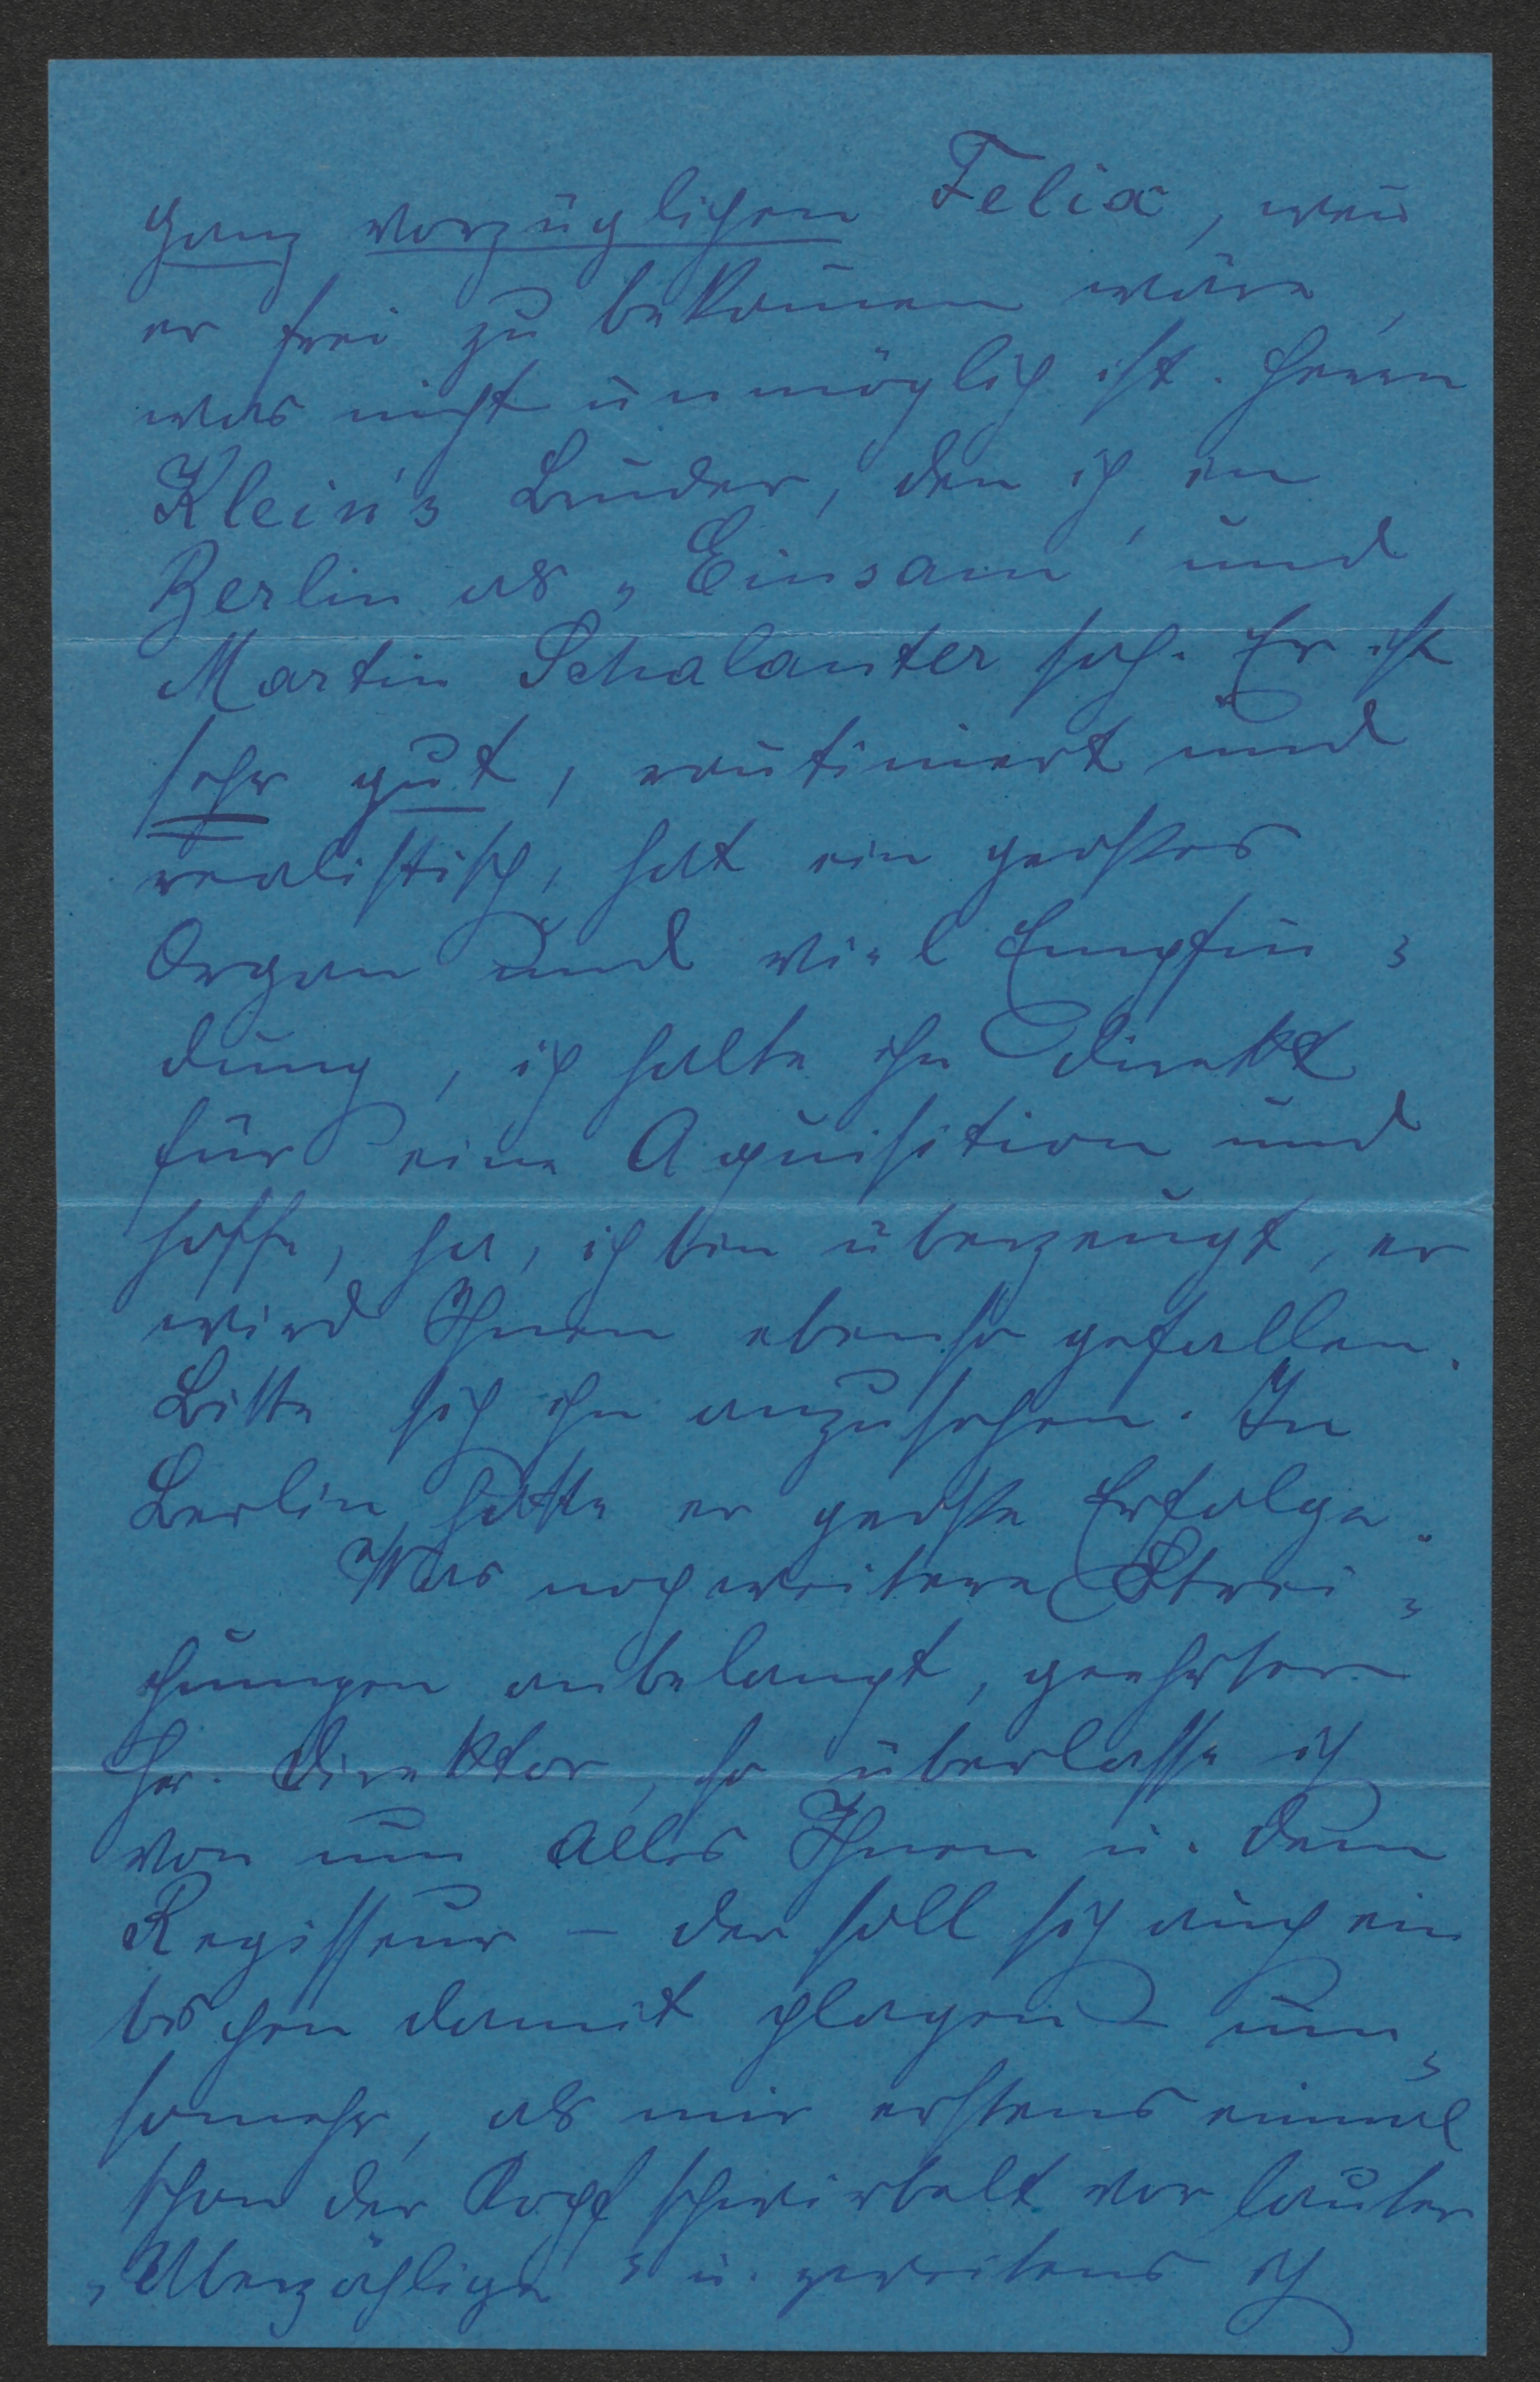 ganz vorzüglichen Felix, weñ
er frei zu bekom̄en wäre,
was nicht unmöglich ist. Herrn
Klein's Bruder, den ich in
Berlin als „Einsam" und
Martin Schalanter sah. Er ist
sehr gut, routiniert und
realistisch, hat ein großes
Organ und viel Empfin-
dung, ich halte ihn direkt
für eine Aquisition und
hoffe, ja, ich bin überzeugt, er
wird Ihnen ebenso gefallen.
Bitte sich ihn anzusehen. In
Berlin hatte er große Erfolge.
Was noch weitere Strei-
chungen anbelangt, geehrter
Hr. Direktor, so überlasse ich
von nun alles Ihnen u. dem
Regisseur – der soll sich auch ein
bischen damit plagen – um-
somehr, als mir erstens einmal
schon der Kopf schwirbelt vor lauter
„Überzählige" u. zweitens ich